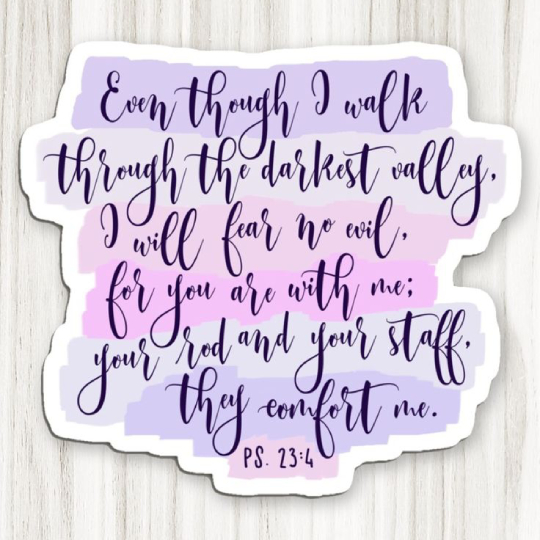 Even though I walk
through the darkest valley,
I will fear no evil,
for you are with me;
your rod and your staff,
they comfort me.
PS. 23:4